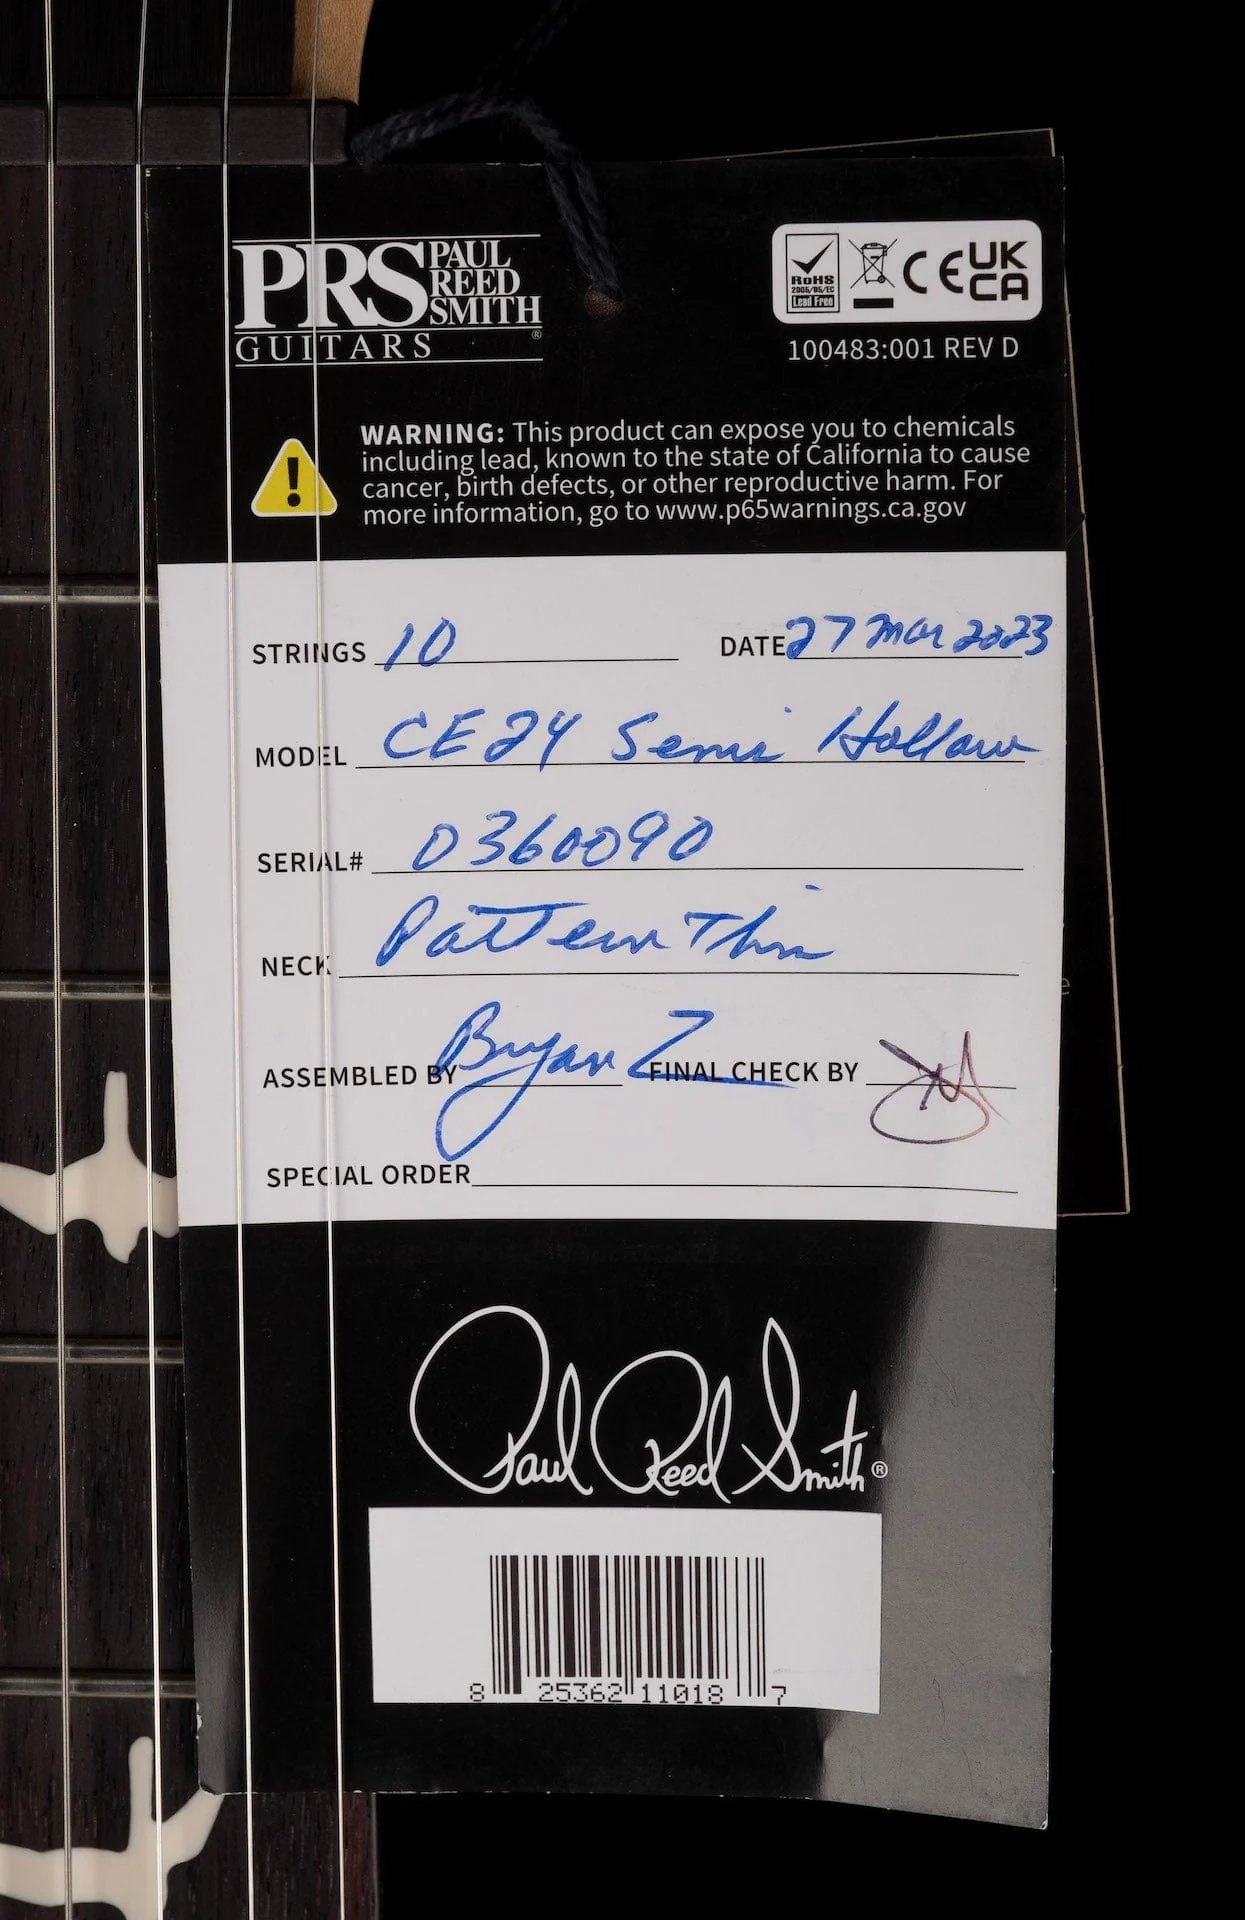 PRS PAUL
REED
SMITH
GUITARS ®
RoHS
2005/95/EC
Lead Free
CE UK
CA
100483:001 REV D
WARNING: This product can expose you to chemicals
including lead, known to the state of California to cause
cancer, birth defects, or other reproductive harm. For
more information, go to www.p65warnings.ca.gov
STRINGS 10 DATE 27 Mar 2023
MODEL CE24 Semi Hollow
SERIAL# 0360090
NECK Pattern Thin
ASSEMBLED BY Bryan Z FINAL CHECK BY
SPECIAL ORDER
Paul Reed Smith ®
8 25362 11018 7